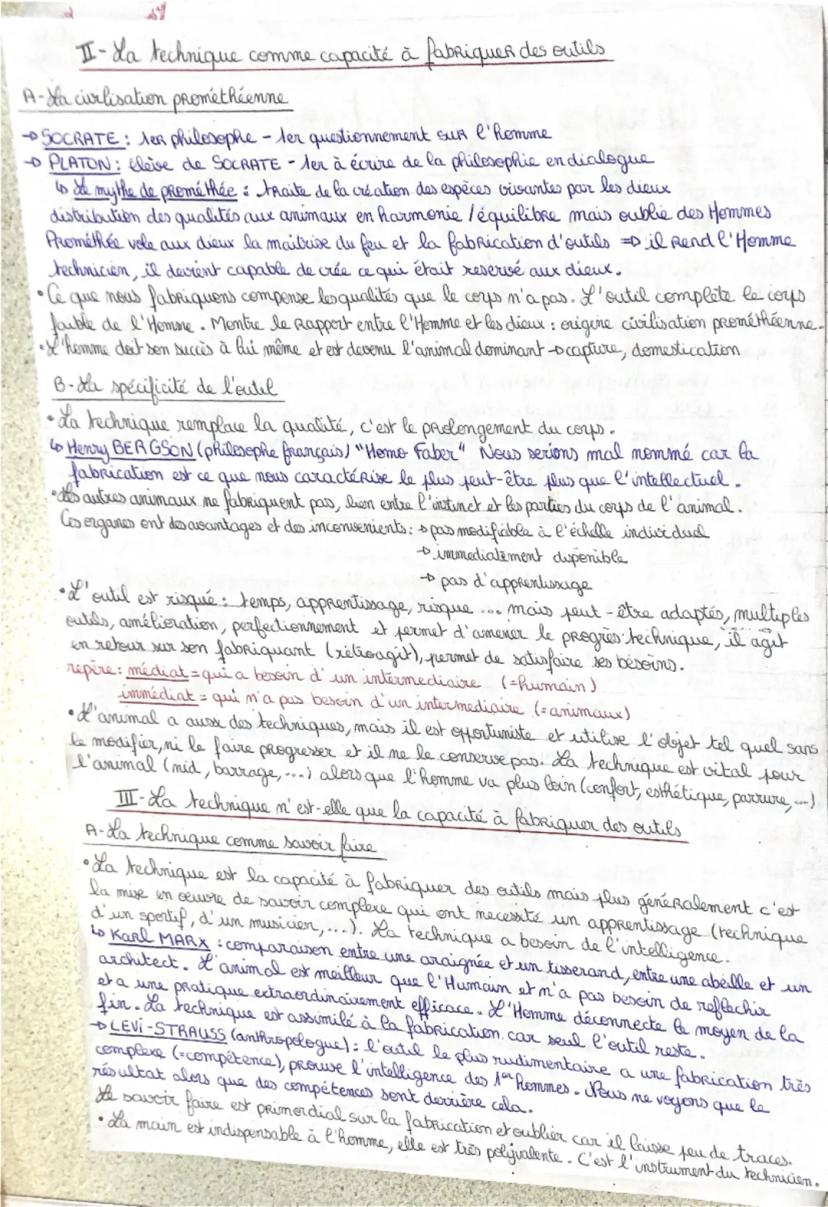 II - La technique comme capacité à fabriquer des outils
A - La civilisation prométhéenne
→ SOCRATE : 1er philosophe - 1er questionnement sur l'homme
→ PLATON : élève de SOCRATE - 1er à écrire de la philosophie en dialogue
↳ Le mythe de prométhée : traite de la création des espèces vivantes par les dieux
distribution des qualités aux animaux en harmonie / équilibre mais oublie des Hommes
Prométhée vole aux dieux la maitrise du feu et la fabrication d'outils ⇒ il rend l'Homme
technicien, il devient capable de crée ce qui était reservé aux dieux.
• Ce que nous fabriquons compense les qualités que le corps n'a pas. L'outil complète le corps
faible de l'Homme. Montre le Rapport entre l'Homme et les dieux : origine civilisation prométhéenne.
• L'homme doit son succès à lui même et est devenu l'animal dominant → capture, domestication
B - La spécificité de l'outil
• La technique remplace la qualité, c'est le prolongement du corps.
↳ Henry BERGSON (philosophe français) "Homo Faber" Nous serions mal nommé car la
fabrication est ce que nous caractérise le plus peut-être plus que l'intellectuel.
• Les autres animaux ne fabriquent pas, lien entre l'instinct et les parties du corps de l'animal.
Ces organes ont des avantages et des inconvenients : → pas modifiable à l'échelle individuel
→ immediatement disponible
→ pas d'apprentissage
• L'outil est risqué : temps, apprentissage, risque ... mais peut-être adaptés, multiples
outils, amélioration, perfectionnement et permet d'amener le progrès technique, il agit
en retour sur son fabriquant (rétroagit), permet de satisfaire ses besoins.
repère : médiat = qui a besoin d'un intermediaire (= humain)
immédiat = qui n'a pas besoin d'un intermediaire (= animaux)
• L'animal a aussi des techniques, mais il est opportuniste et utilise l'objet tel quel sans
le modifier, ni le faire progresser et il ne le conserve pas. La technique est vital pour
l'animal (nid, barrage, ...) alors que l'homme va plus loin (confort, esthétique, parrure, ...)
III - La technique n'est-elle que la capacité à fabriquer des outils
A - La technique comme savoir faire
• La technique est la capacité à fabriquer des outils mais plus généralement c'est
la mise en œuvre de savoir complexe qui ont necessité un apprentissage (technique
d'un sportif, d'un musicien, ...). La technique a besoin de l'intelligence.
↳ Karl MARX : comparaison entre une araignée et un tisserand, entre une abeille et un
architect. L'animal est meilleur que l'Humain et n'a pas besoin de reflechir
et a une pratique extraordinairement efficace. L'Homme déconnecte le moyen de la
fin. La technique est assimilé à la fabrication, car seul l'outil reste.
→ LEVI-STRAUSS (anthropologue) : l'outil le plus rudimentaire a une fabrication très
complexe (= compétence), prouve l'intelligence des 1er Hommes. Nous ne voyons que le
résultat alors que des compétences sont derrière cela.
Le savoir faire est primordial sur la fabrication et oublier car il laisse peu de traces.
• La main est indispensable à l'homme, elle est très polyvalente. C'est l'instrument du technicien.